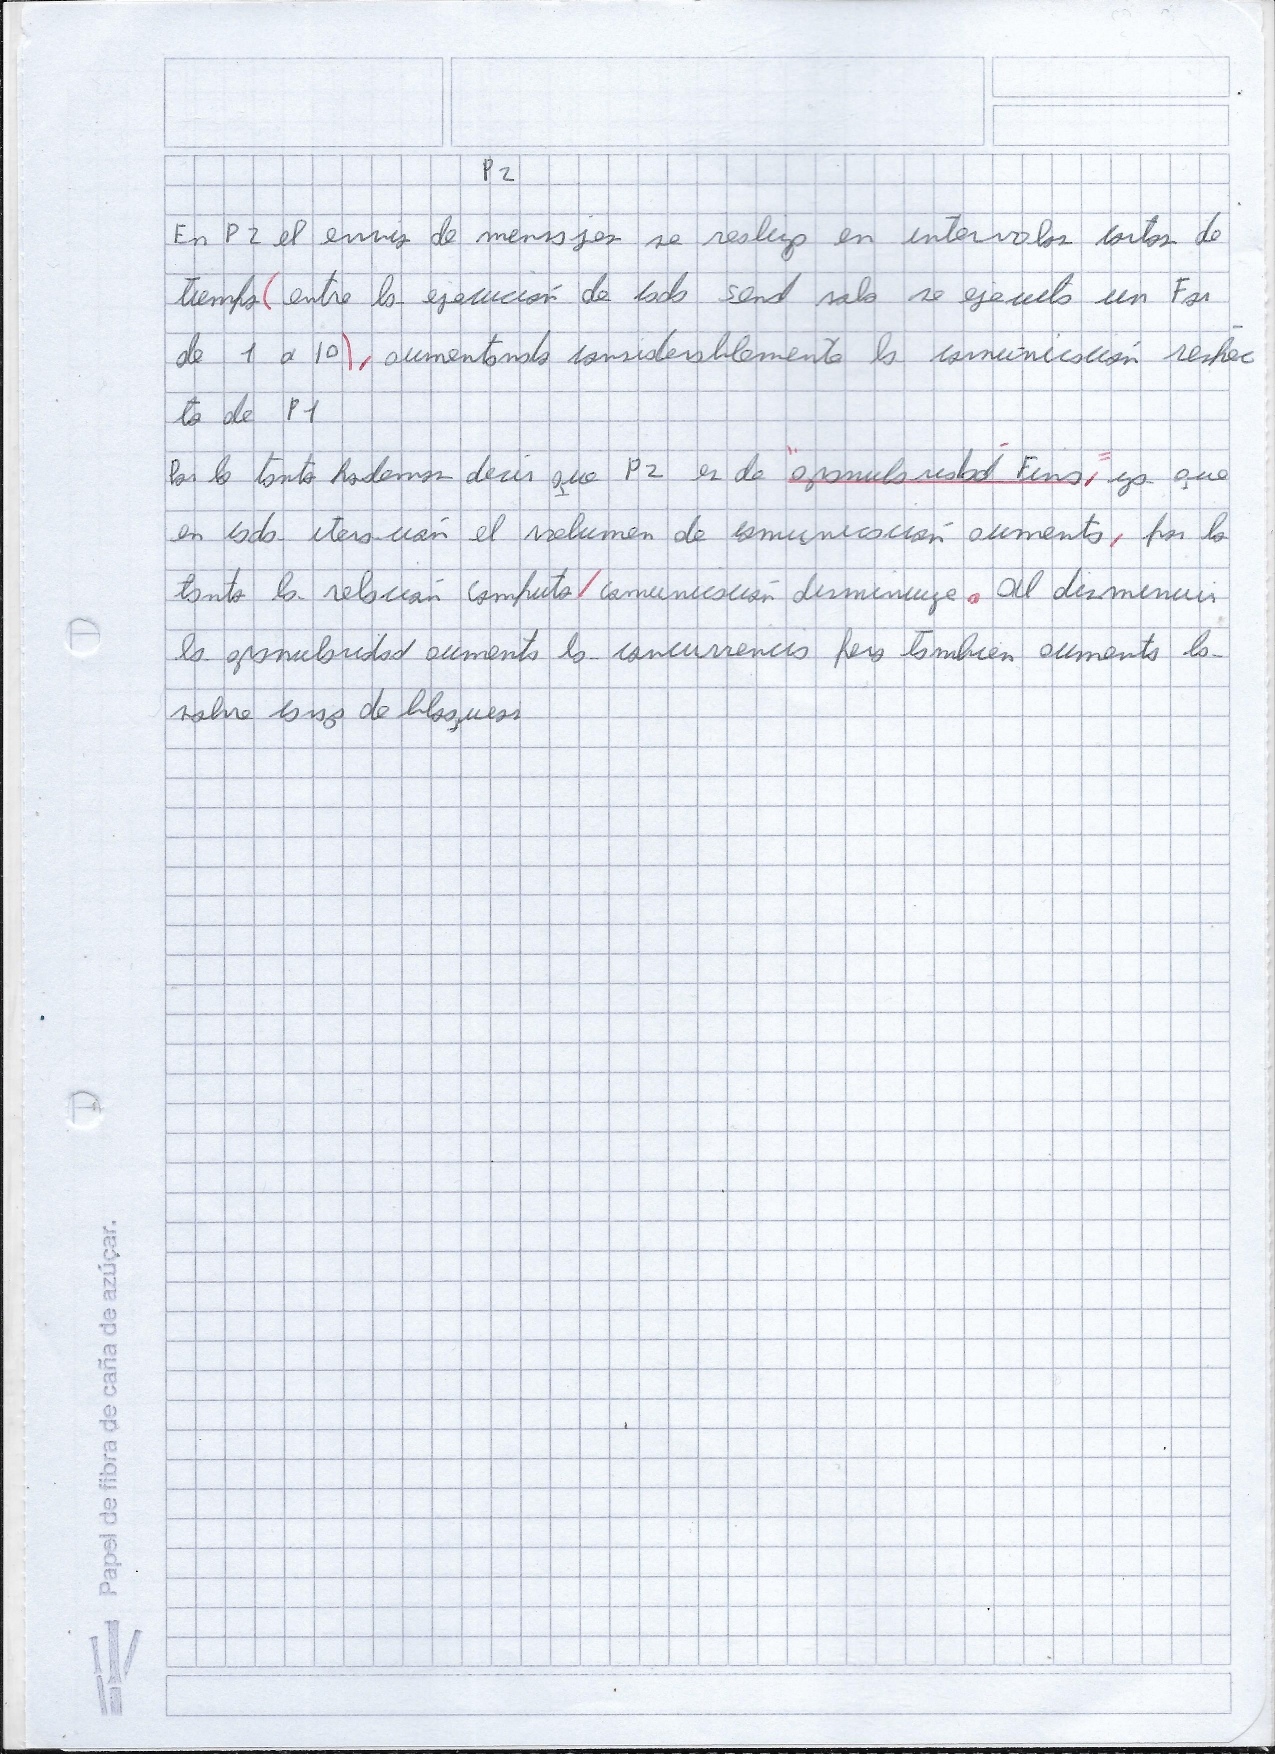 P2
En P2 el envio de mensajes se realiza en intervalos cortos de
tiempo( entre la ejecución de cada send solo se ejecuta un For
de 1 a 10), aumentando considerablemente la comunicación respec
to de P1
Por lo tanto podemos decir que P2 es de "granularidad Fina," ya que
en cada iteración el volumen de comunicación aumenta, por lo
tanto la relación computo/comunicación disminuye. Al disminuir
la granularidad aumenta la concurrencia pero tambien aumenta la
sobre carga de bloqueos
Papel de fibra de caña de azúçar.